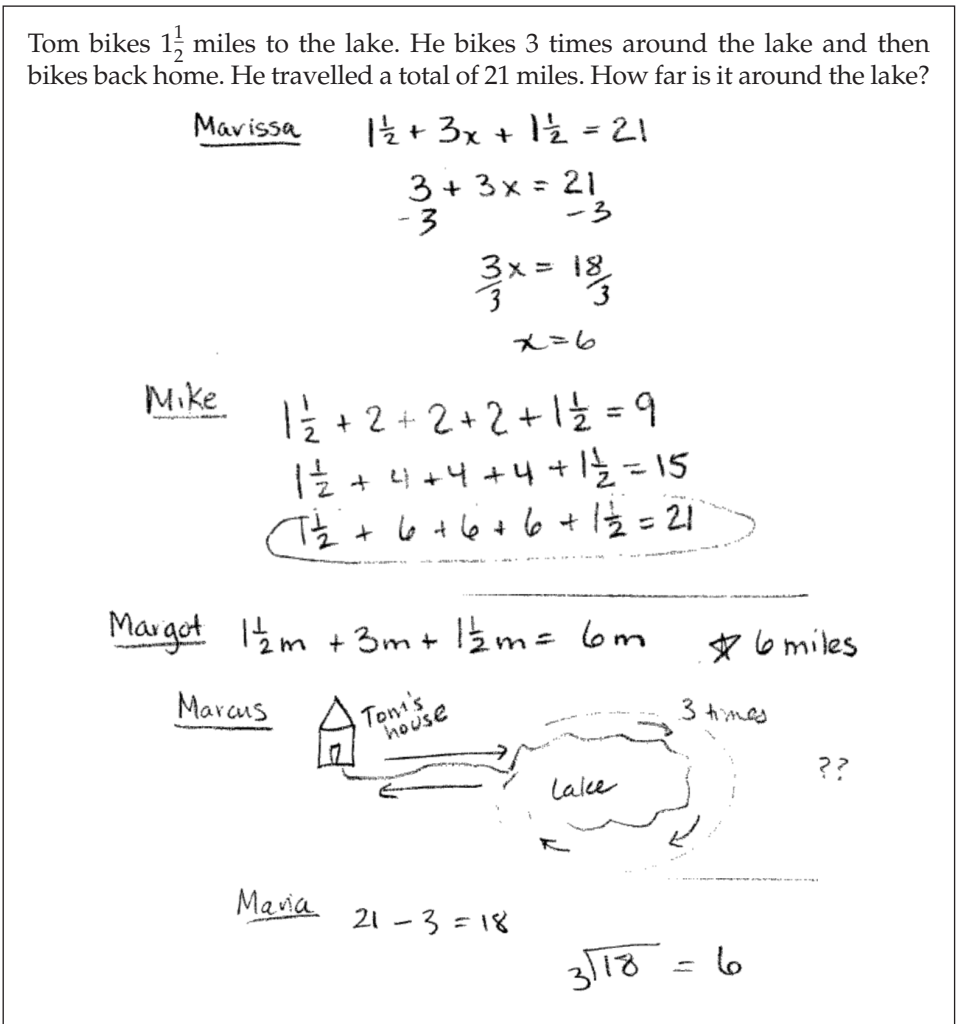 Tom bikes 1½ miles to the lake. He bikes 3 times around the lake and then
bikes back home. He travelled a total of 21 miles. How far is it around the lake?
Marissa 1½ + 3x + 1½ = 21
3 + 3x = 21
-3 -3
3x/3 = 18/3
x=6
Mike
1½ + 2 + 2 + 2 + 1½ = 9
1½ + 4 + 4 + 4 + 1½ = 15
1½ + 6 + 6 + 6 + 1½ = 21
Margot 1½m + 3m + 1½m = 6m ☆ 6 miles
Marcus Tom's house 3 times
??
Lake
Maria 21 - 3 = 18
3⟌18 = 6